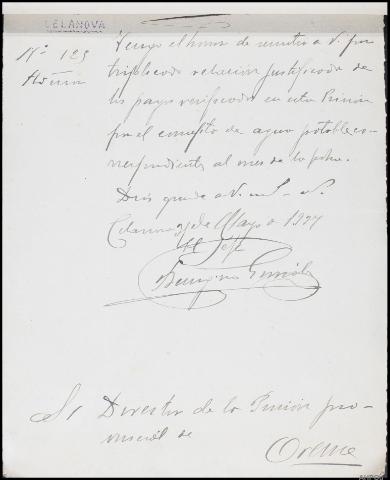 CELANOVA
Nº 129
Admón
Tengo el honor de remitir a V. por
triplicado relación justificada de
los pagos verificados en esta Prisión
por el concepto de agua potable co-
rrespondiente al mes de la fecha.
Dios guarde a V. m. a.
Celanova 31 de Mayo 1937
El Jefe
Sr Director de la Prisión pro-
vincial de
Orense